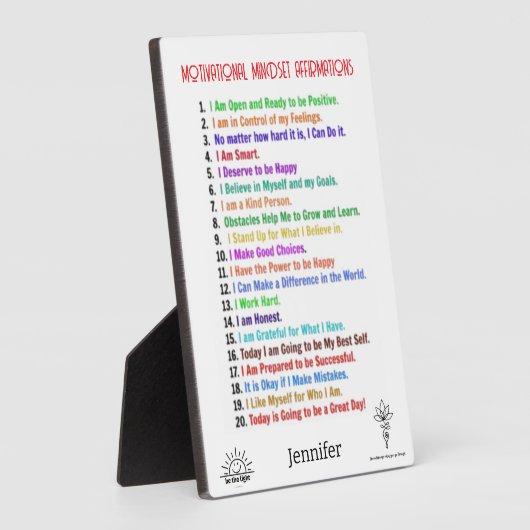 MOTIVATIONAL MINDSET AFFIRMATIONS
1. I Am Open and Ready to be Positive.
2. I am in Control of my Feelings.
3. No matter how hard it is, I Can Do it.
4. I Am Smart.
5. I Deserve to be Happy
6. I Believe in Myself and my Goals.
7. I am a Kind Person.
8. Obstacles Help Me to Grow and Learn.
9. I Stand Up for What I Believe in.
10. I Make Good Choices.
11. I Have the Power to be Happy
12. I Can Make a Difference in the World.
13. I Work Hard.
14. I am Honest.
15. I am Grateful for What I Have.
16. Today I am Going to be My Best Self.
17. I Am Prepared to be Successful.
18. It is Okay if I Make Mistakes.
19. I Like Myself for Who I Am.
20. Today is Going to be a Great Day!
be the light
Jennifer